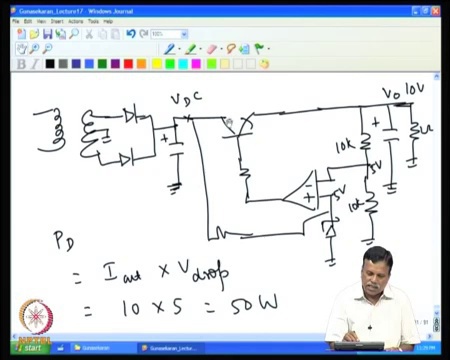 Gunasekaran_Lecture17 - Windows Journal
File Edit View Insert Actions Tools Help
100%
B I
VDC
Vo 10V
10k
5V
5V
10k
PD
= Iout × Vdrop
= 10 × 5 = 50W
start
Gunasekaran
Gunasekaran_Lectu...